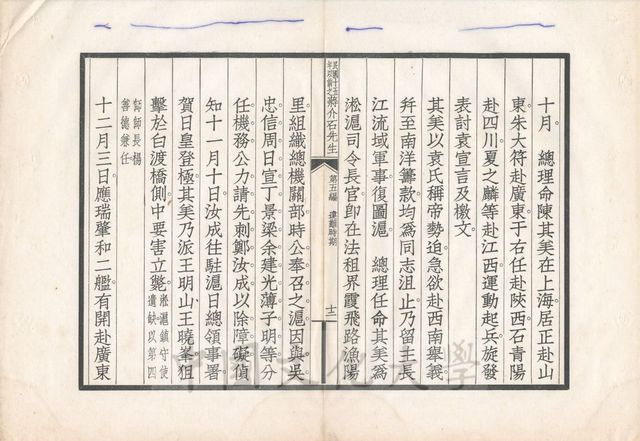 十月　總理命陳其美在上海居正赴山
東朱大符赴廣東于右任赴陝西石青陽
赴四川夏之麟等赴江西運動起兵旋發
表討袁宣言及檄文
其美以袁氏稱帝勢迫急欲赴西南舉義
并至南洋籌款均為同志沮止乃留主長
江流域軍事復圖滬　總理任命其美為
淞滬司令長官即在法租界霞飛路漁陽
民國十五年以前之蔣介石先生　第五編　護難時期　十二
里組織總機關部時公奉召之滬因與吳
忠信周日宣丁景梁余建光薄子明等分
任機務公力請先刺鄭汝成以除障礙偵
知十一月十日汝成往駐滬日總領事署
賀日皇登極其美乃派王明山王曉峯狙
擊於白渡橋側中要害立斃淞滬鎮守使遺缺以第四
師師長楊善德兼任
十二月三日應瑞肇和二艦有開赴廣東
中國文化大學